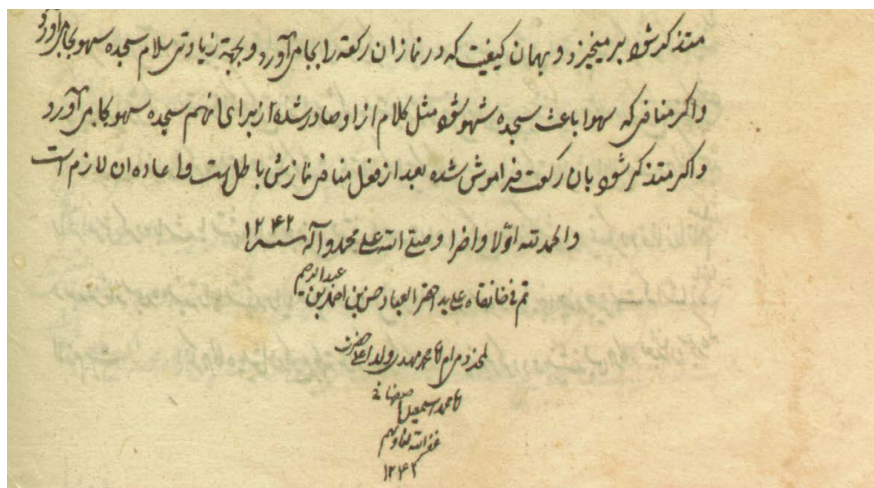 متذکر شود برمیخیزد و بهمان کیفیت که در نماز ان رکعة را بجا می‌آورد و بجهة زیادتی سلام سجده سهو بجا می‌آورد
و اکر منافی که سهوا باعث سجده سهو شود مثل کلام از او صادر شده از برای انهم سجده سهو بجا می‌آورد
و اکر متذکر شود بان رکعت فراموش شده بعد از فعل منافی نمازش باطل است و اعاده ان لازم است
و الحمد لله اوّلا و اخرا و صلی الله علی محمد و آله سنه ۱۲۴۲
تم فی خانقاه علی ید احقر العباد حسن بن احمد بن عبدالرحیم
محمد مهدی ولد اعلی حضرت
محمد اسمعیل
غفر الله لنا و لهم
۱۲۴۲